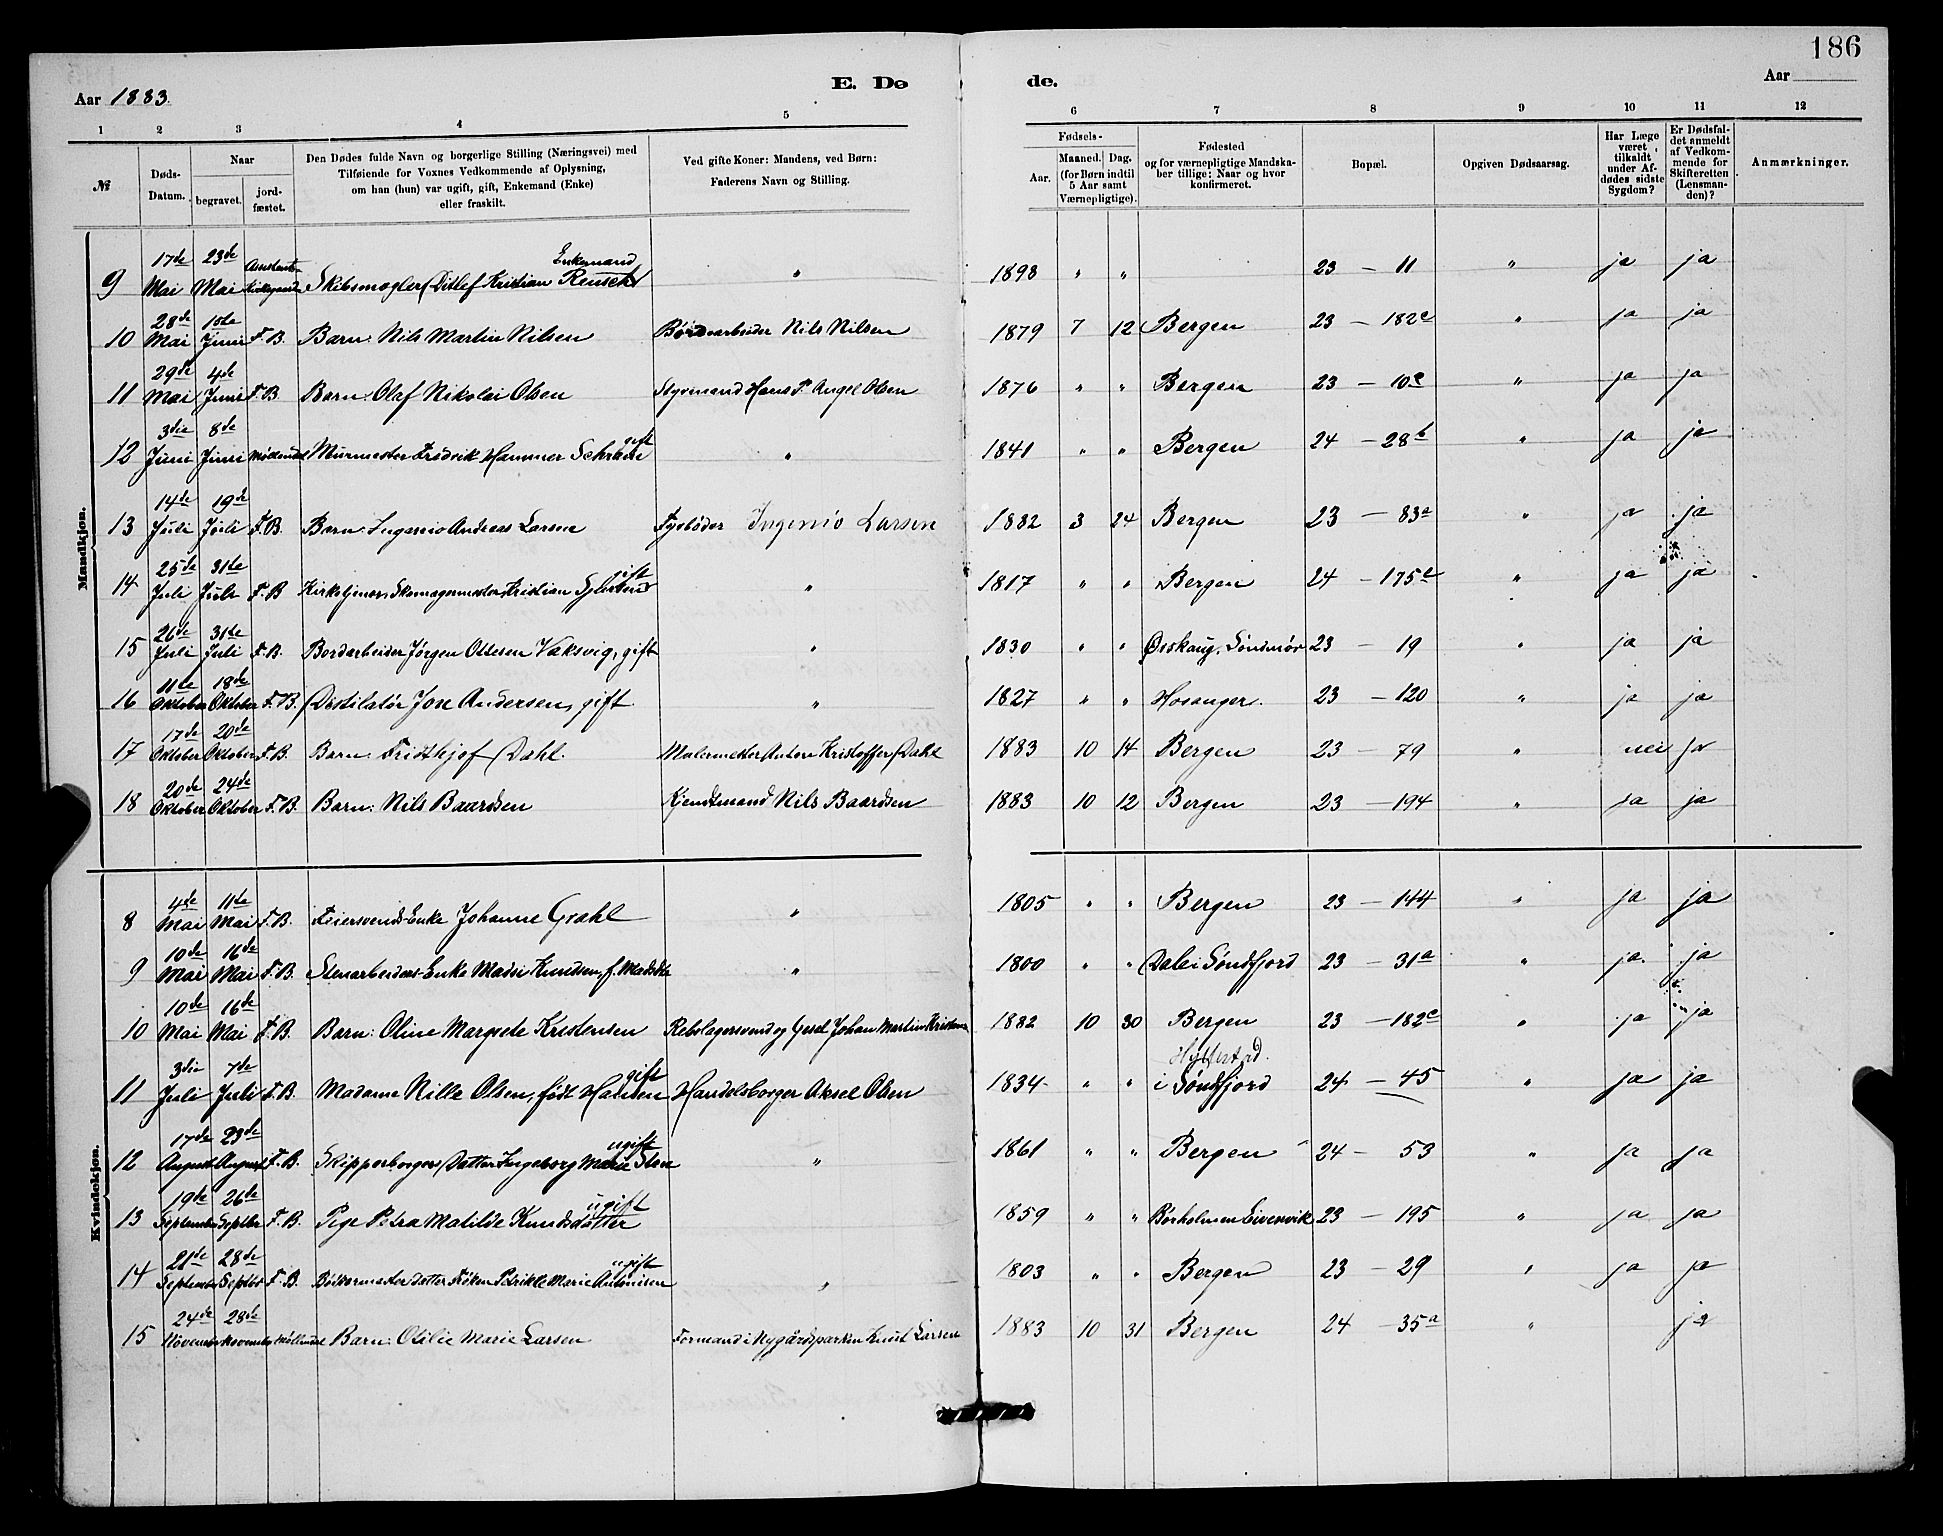 186
Aar 1883.
E. Dø
de.
Aar
1 2 3 4 5 6 7 8 9 10 11 12
№
Døds-Datum.
Naar
begravet.
jord-fæstet.
Den Dødes fulde Navn og borgerlige Stilling (Næringsvei) med
Tilføiende for Voxnes Vedkommende af Oplysning,
om han (hun) var ugift, gift, Enkemand (Enke)
eller fraskilt.
Ved gifte Koner: Mandens, ved Børn:
Faderens Navn og Stilling.
Fødsels-
Aar.
Maaned. Dag.
(for Børn indtil
5 Aar samt
Værnepligtige).
Fødested
og for værnepligtige Mandska-
ber tillige: Naar og hvor
konfirmeret.
Bopæl.
Opgiven Dødsaarsag.
Har Læge
været
tilkaldt
under Af-
dødes sidste
Sygdom?
Er Dødsfal-
det anmeldt
af Vedkom-
mende for
Skifteretten
(Lensman-
den)?
Anmærkninger.
Mandkjøn.
9 17de Mai 23de Mai Skibsmægler Ditlef Kristian Enkemand " " " 23 — 11 " ja ja
10 28de Mai Juni F.B. Barn: Nils Martin Nilsen Nils Nilsen 1879 7 12 Bergen 23 — 182c " ja ja
11 29de Mai 4de Juni F.B. Barn: Olaf Nikolei Olsen Styrmand Hans P. Angel Olsen 1876 " " Bergen 23 — 10e " ja ja
12 3die Juni 8de Juni Møllendal Murmester Fredrik Hammer gift " 1841 " " Bergen 24 — 28b " ja ja
13 14de Juli 19de Juli F.B. Barn: Ingenio Andreas Larsen Fyrbøder Ingenio Larsen 1882 3 24 Bergen 23 — 83a " ja ja
14 25de Juli 31te Juli F.B. Kirketjener, Skomagermester Kristian gift " 1817 " " Bergen 24 — 175c " ja ja
15 26de Juli 31te Juli F.B. Bordarbeider Jørgen Ottesen Vaksvig, gift " 1830 " " Ørskaug, Søndmør 23 — 19 " ja ja
16 11te Oktober 18de Oktober F.B. Distilatør Jon Andersen, gift " 1827 " " Hosanger. 23 — 120 " ja ja
17 17de Oktober 20de Oktober F.B. Barn: Fristhjof Dahl. Malermester Anton Kristoffer Dahl 1883 10 14 Bergen 23 — 79 " nei ja
18 20de Oktober 24de Oktober F.B. Barn: Nils Baardsen Kjendtmand Nils Baardsen 1883 10 12 Bergen 23 — 194 " ja ja
Kvindekjøn.
8 4de Mai 11te Mai F.B. Feiersvends-Enke Johanne Grahl " 1805 " " Bergen 23 — 144 " ja ja
9 10de Mai 16de Mai F.B. Stenarbeiders-Enke Madsi Knudsen, f. Madsdtr " 1800 " " Dale i Søndfjord 23 — 31a " ja ja
10 10de Mai 16de Mai F.B. Barn: Oline Margrete Kristensen Rebslagersvend og Johan Martin 1882 10 30 Bergen 23 — 182c " ja ja
11 3die Juli 7de Juli F.B. Madame Nille Olsen, født Hansen gift Handelsborger Aksel Olsen 1834 " " Hyllestad i Søndfjord 24 — 45 " ja ja
12 17de August 23de August F.B. Skipperborgers Datter Ingeborg Marie ugift " 1861 " " Bergen 24 — 53 " ja ja
13 19de September 26de Septbr F.B. Pige Petra Matilde Knudsdatter ugift 1859 " " Eivenvik 23 — 195 " ja ja
14 21de September 28de Septbr F.B. Bødkermester datter Frøken Marie ugift " 1803 " " Bergen 23 — 29 " ja ja
15 24de November 28de November Møllendal Barn: Otilie Marie Larsen Formand i Nygårdsparken Knud Larsen 1883 10 31 Bergen 24 — 35a " ja